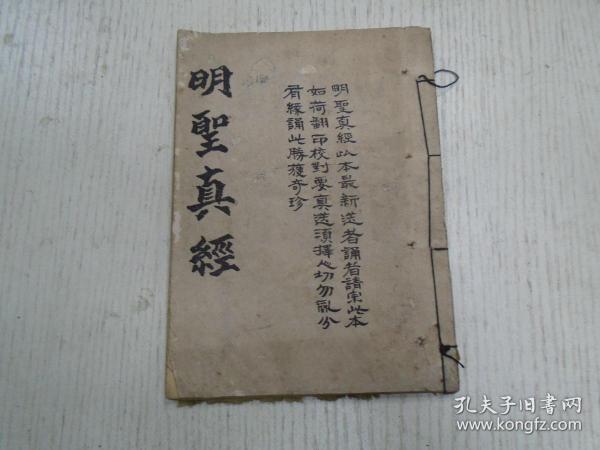 明聖真經
明聖真經以本最新送者誦者請宗此本
如荷翻印校對要真送須擇人切勿亂分
有緣誦此勝獲奇珍
孔夫子旧书网
www.kongfz.com